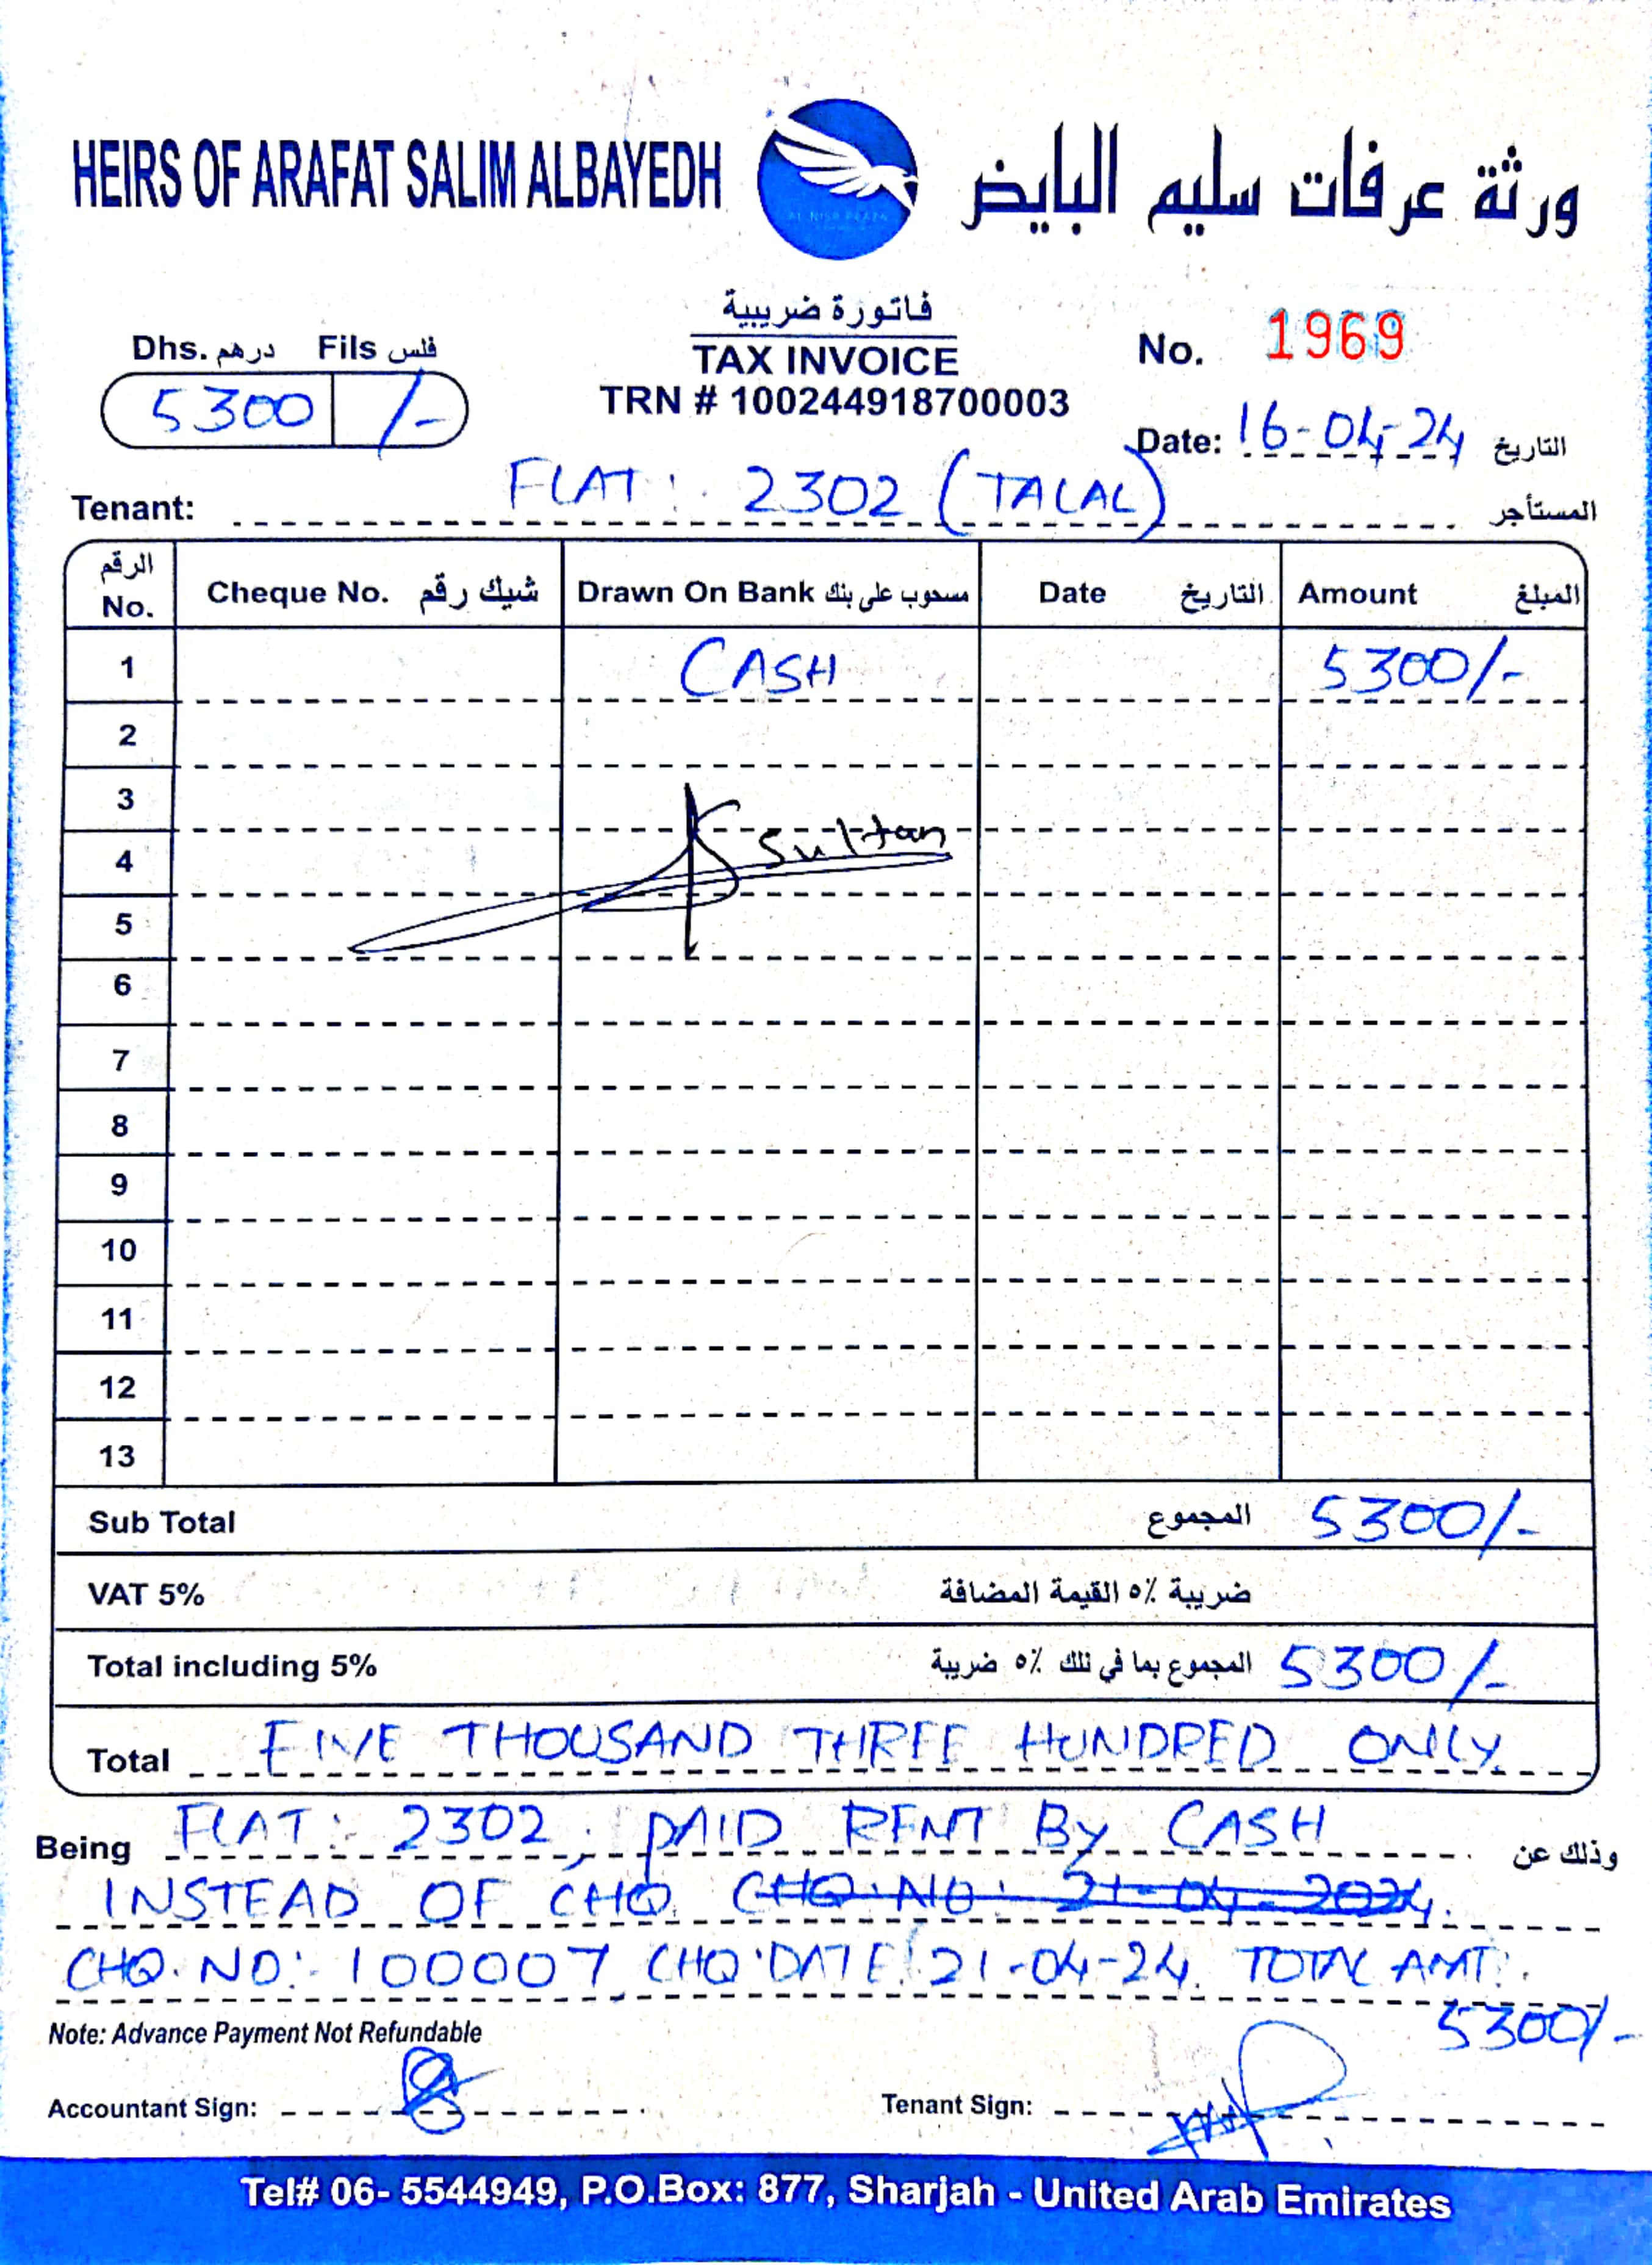 HEIRS OF ARAFAT SALIM ALBAYEDH
ورثة عرفات سليم البايض
AL NISR PLAZA
فاتورة ضريبية
TAX INVOICE
TRN # 100244918700003
Dhs. درهم Fils فلس
5300 /-
No. 1969
Date: 16-04-24 التاريخ
Tenant: FLAT: 2302 (TALAL) المستأجر
الرقم No. Cheque No. شيك رقم Drawn On Bank مسحوب على بنك Date التاريخ Amount المبلغ
1 CASH 5300/-
2
3
4 Sultan
5
6
7
8
9
10
11
12
13
Sub Total المجموع 5300/-
VAT 5% ضريبة ٥٪ القيمة المضافة
Total including 5% المجموع بما في تلك ٥٪ ضريبة 5300/-
Total FIVE THOUSAND THREE HUNDRED ONLY.
Being FLAT: 2302, PAID RENT By CASH وذلك عن
INSTEAD OF CHQ. CHQ.NO: 21-04-2024.
CHQ. NO: 100007, CHQ DATE: 21-04-24. TOTAL AMT:
5300/-
Note: Advance Payment Not Refundable
Accountant Sign:
Tenant Sign:
Tel# 06- 5544949, P.O.Box: 877, Sharjah - United Arab Emirates